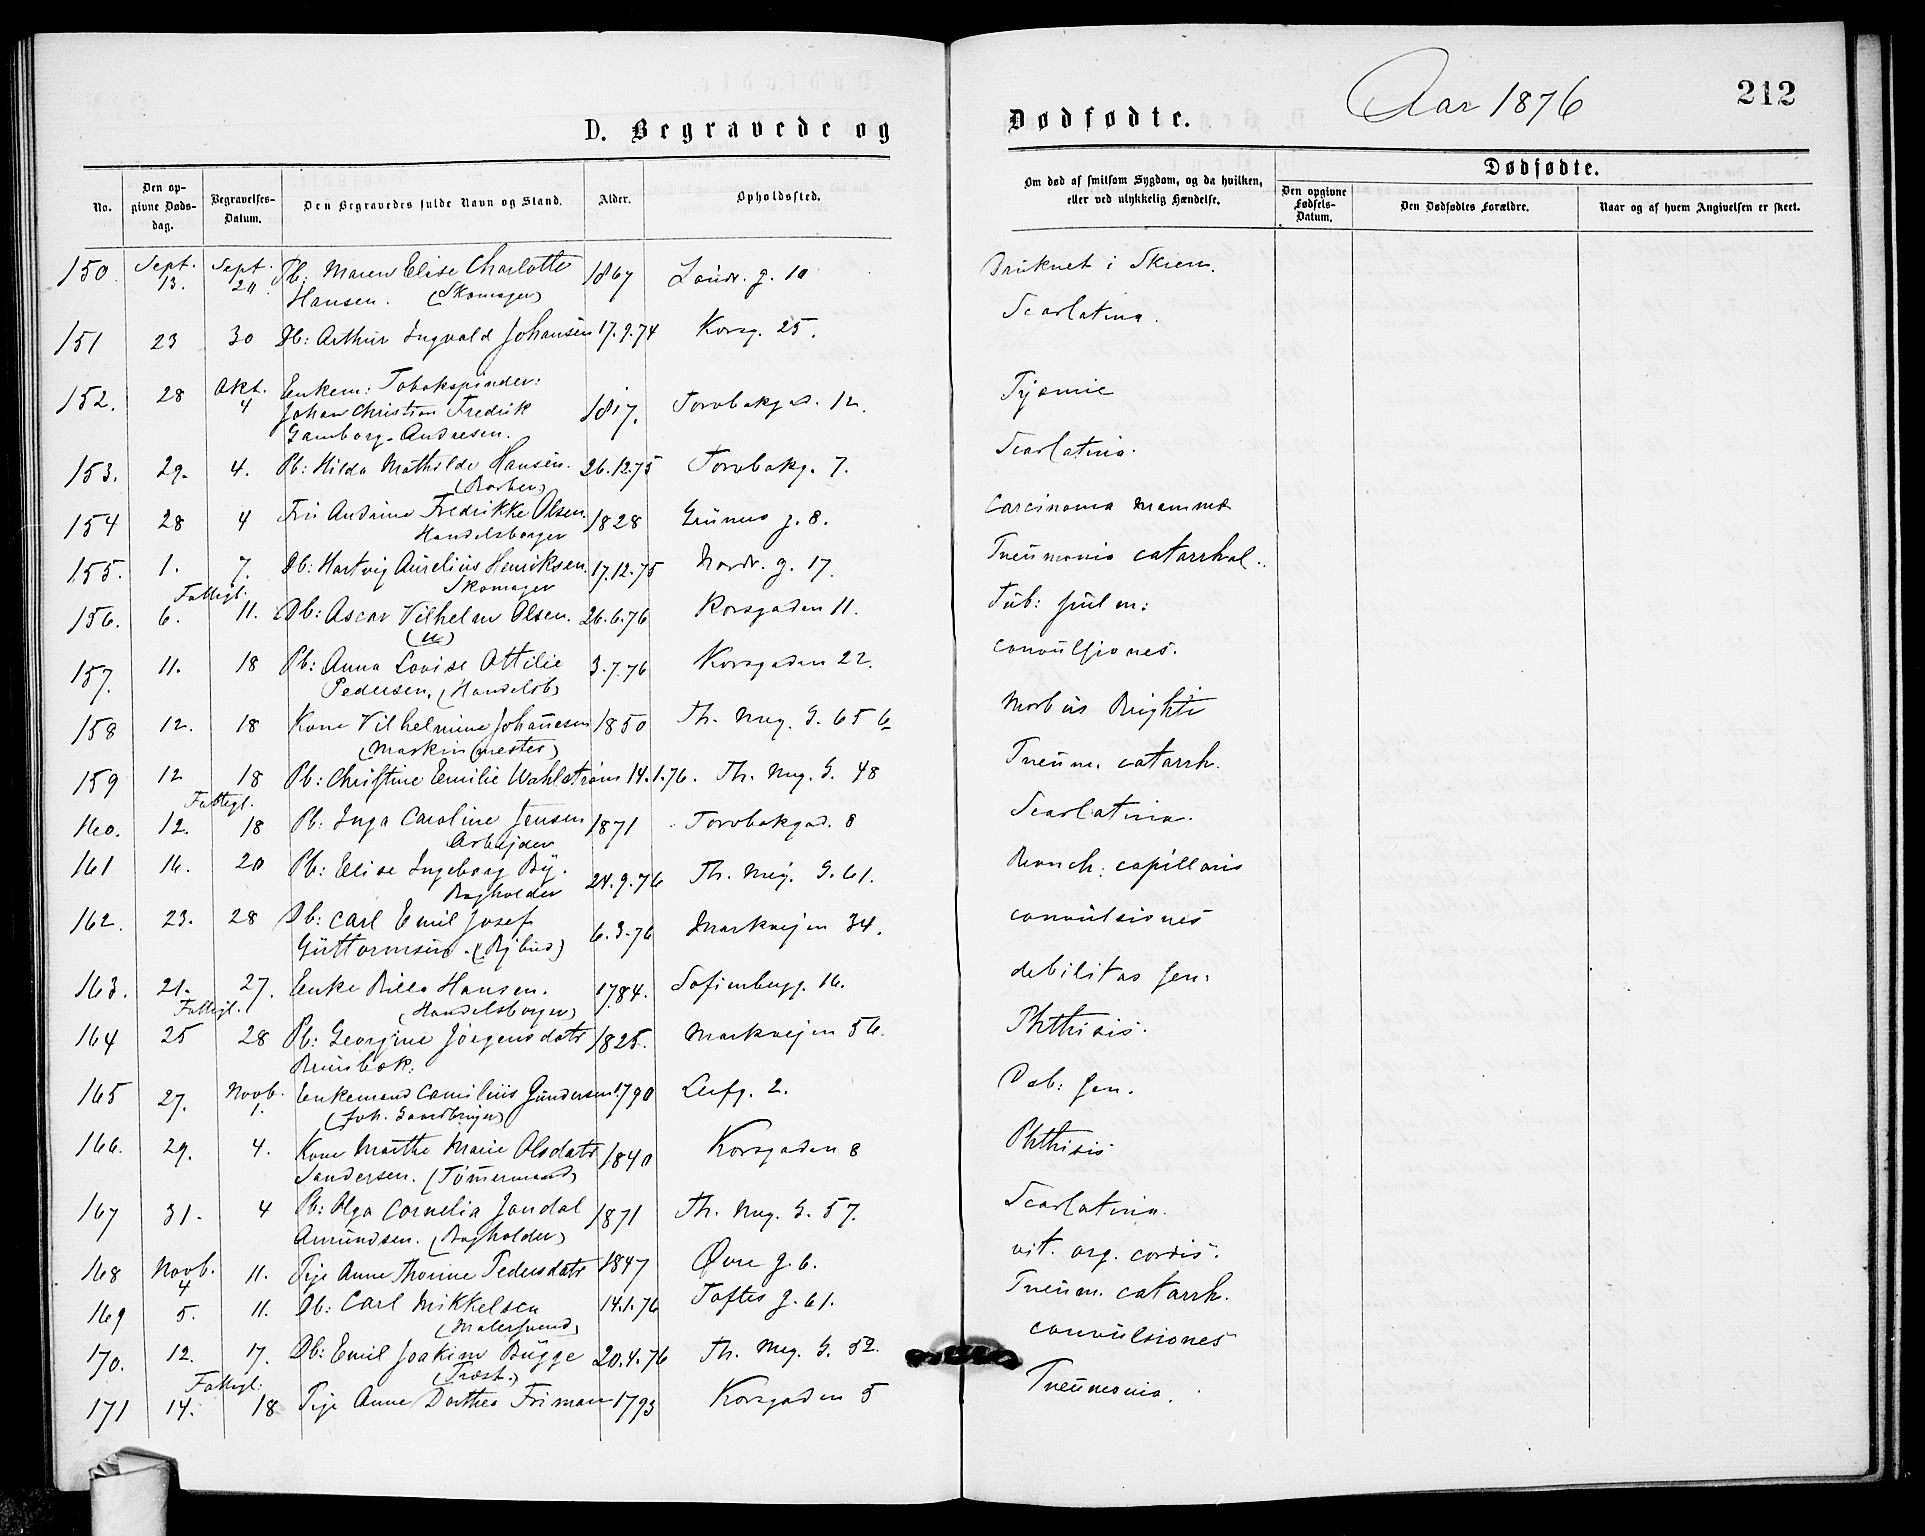 D. Begravede og
Dødfødte.
Aar 1876
212
No.
Den opgivne Dødsdag.
Begravelses-Datum.
Den Begravedes fulde Navn og Stand.
Alder.
Opholdssted.
Om død af smitsom Sygdom, og da hvilken, eller ved ulykkelig Hændelse.
Dødfødte.
Den opgivne Fødsels-Datum.
Den Dødfødtes Forældre.
Naar og af hvem Angivelsen er skeet.
150. Sept. 13. Sept. 20. Pb: Maren Elise Charlotte 1867 Søndr. g. 10 Druknet i Skien.
Hansen. (Skomager)
151 23 30 Db: Arthur Ingvald Johansen 17.9.74 Korsg. 25. Scarlatina.
152. 28 Okt. 4 Enkem: Tobakspinder: 1817. Torvbakgad. 12. Pyæmie
Johan Christian Fredrik
Gamborg-Andresen.
153. 29. 4. Pb: Hilda Mathilde Hansen. 26.12.75 Torvbakg. 7. Scarlatina.
154 28 4 Andrine Fredrikke Olsen. 1828 Grüners g. 8. Carcinoma mammæ
Handelsborger
155. 1. 7. Db: Hartvig Aurelius Henriksen. 17.12.75 Nordr. g. 17. Pneumonia catarrhal.
Skomager
Fattigl.
156. 6. 11. Db: Oscar Vilhelm Olsen. 26.6.76 Korsgaden 11. Tub: pulm:
157. 11. 18 Pb: Anna Lovise Ottilie 3.7.76 Korsgaden 22. convulsiones.
Pedersen. (Handelsb)
158 12. 18 Kone Vilhelmine Johannesen 1850 Th. Mey. G. 65 b Morbus Brighti
(Maskinmester)
159 12 18 Pb: Christine Emilie Wahlstrøm 14.1.76. Th. Mey. G. 48 Pneum. catarrh.
Fattigl.
160. 12. 18 Pb: Inga Caroline Jensen 1871 Torvbakgad. 8 Scarlatina.
Arbejder
161 16. 20 Pb: Elise Ingeborg By. 24.9.76 Th. Mey. G. 61. Bronch: capillaris
Bogholder
162. 23. 28 Db: Carl Emil Josef 6.3.76 Markvejen 34. convulsiones
Guttormsen. (Bybud)
163. 21. 27. Enke Hansen. 1784. Sofienbergg. 16. debilitas sen:
(Handelsborger)
Fattigl.
164 25 28 Pb: Georgine Jörgensdatr 1825. Markvejen 56. Phthisis.
165 27. Novb. 1. Enkemand Camilius Gundersen 1790 Leirg. 2. Deb: sen.
166. 29. 4. Kone Marthe Marie Olsdatr 1840 Korsgaden 8 Phthisis
Sandersen. (Tömmermand)
167 31. 4 Pb: Olga Cornelia Jondal 1871 Th. Mey. G. 57. Scarlatina.
Amundsen. (Bogholder)
168 Novb. 4 11. Pige Anne Thorine Pedersdatr 1847 Øvre g. 6. vit. org. cordis.
169 5. 11. Db: Carl Mikkelsen 14.1.76 Toftes g. 61. Pneum. catarrh.
(Malersvend)
170. 12. 17. Db: Emil Joakim Bügge 20.4.76 Th. Mey. G. 52. convulsiones
Fattigl.
171 14. 18 Pige Anne Dorthea Friman 1793 Korsgaden 5 Pneumonia.